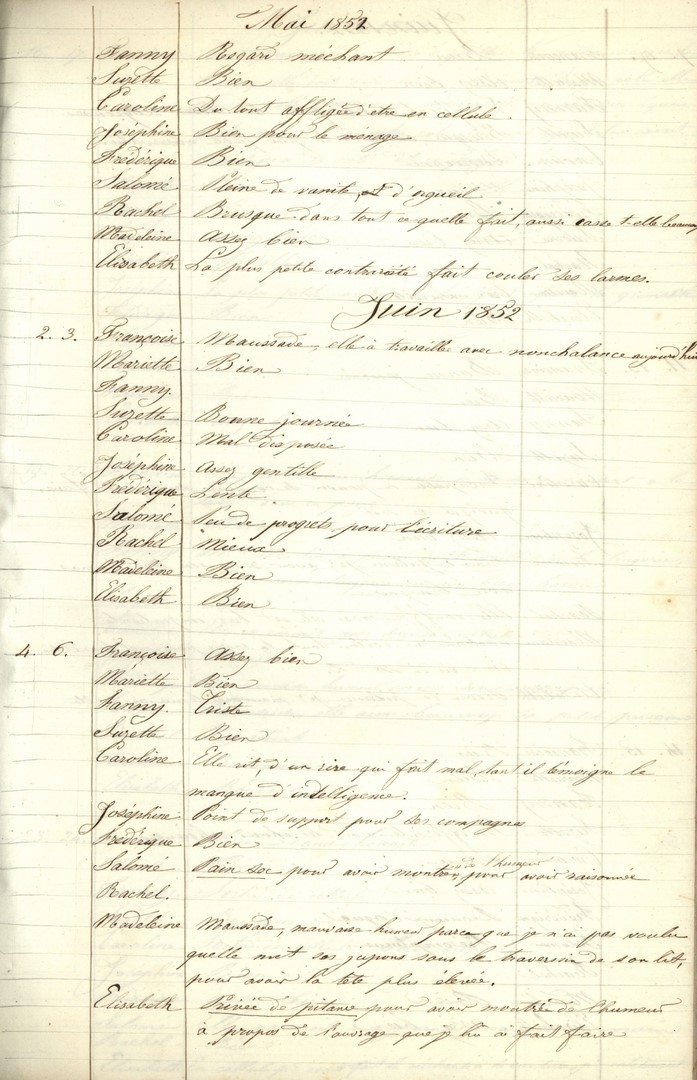 Mai 1852
Fanny Regard méchant
Suzette Bien
Caroline Du tout affligée d'etre en cellule.
Joséphine Bien pour le ménage
Frédérique Bien
Salomé Pleine de vanité, et d'orgueil
Rachel Brusque dans tout ce quelle fait, aussi casse t-elle beaucoup
Madeleine Assez bien
Elisabeth La plus petite contrariété fait couler ses larmes.
Juin 1852
2. 3. Françoise Maussade, elle à travaillé avec nonchalance aujourd'hui
Mariette Bien
Fanny.
Suzette Bonne journée
Caroline Mal disposée
Joséphine Assez gentille
Frédérique Lente
Salomé Peu de progrets pour l'écriture
Rachel Mieux
Madeleine Bien
Elisabeth Bien
4. 6. Françoise Assez bien
Mariette Bien
Fanny. Triste
Suzette Bien
Caroline Elle rit, d'un rire qui fait mal, tant il témoigne le
manque d'intelligence.
Joséphine Point de support pour ses compagnes
Frédérique Bien
Salomé Pain sec pour avoir montré de l'humeur pour avoir raisonnée
Rachel.
Madeleine Maussade, mauvaise humeur parce que je n'ai pas voulu
quelle mit ses jupons sous le traversin de son lit,
pour avoir la tete plus élevée.
Elisabeth Privée de pitance pour avoir montrée de l'humeur
à propos de l'ouvrage que je lui à fait faire